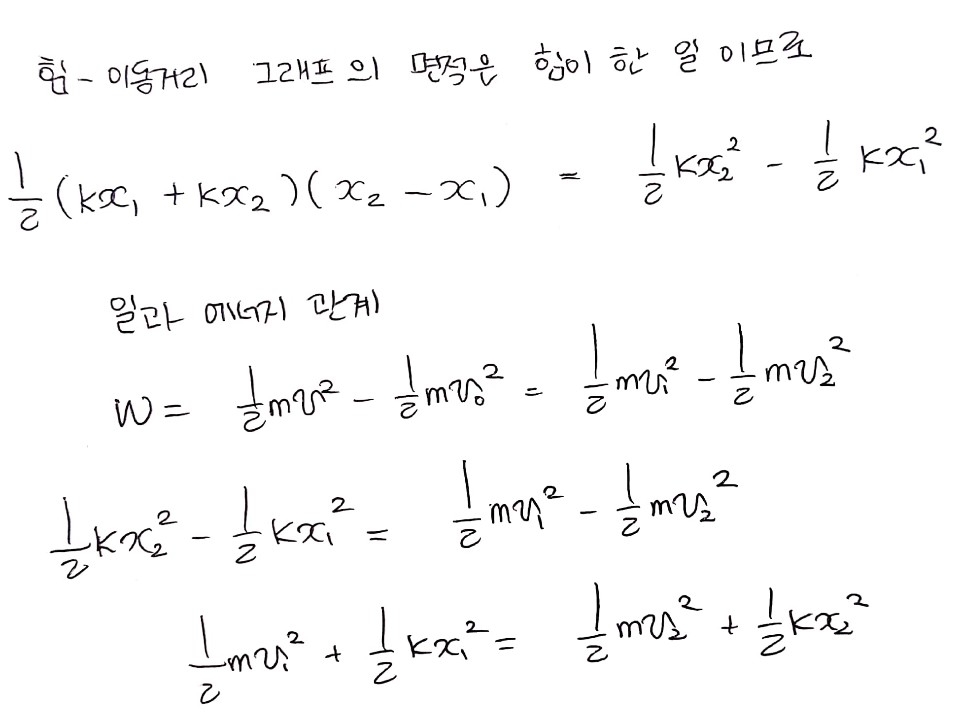 힘 - 이동거리 그래프의 면적은 힘이 한 일 이므로
$\frac{1}{2}(kx_1 + kx_2)(x_2 - x_1) = \frac{1}{2}kx_2^2 - \frac{1}{2}kx_1^2$
일과 에너지 관계
$W = \frac{1}{2}mv^2 - \frac{1}{2}mv_0^2 = \frac{1}{2}mv_1^2 - \frac{1}{2}mv_2^2$
$\frac{1}{2}kx_2^2 - \frac{1}{2}kx_1^2 = \frac{1}{2}mv_1^2 - \frac{1}{2}mv_2^2$
$\frac{1}{2}mv_1^2 + \frac{1}{2}kx_1^2 = \frac{1}{2}mv_2^2 + \frac{1}{2}kx_2^2$